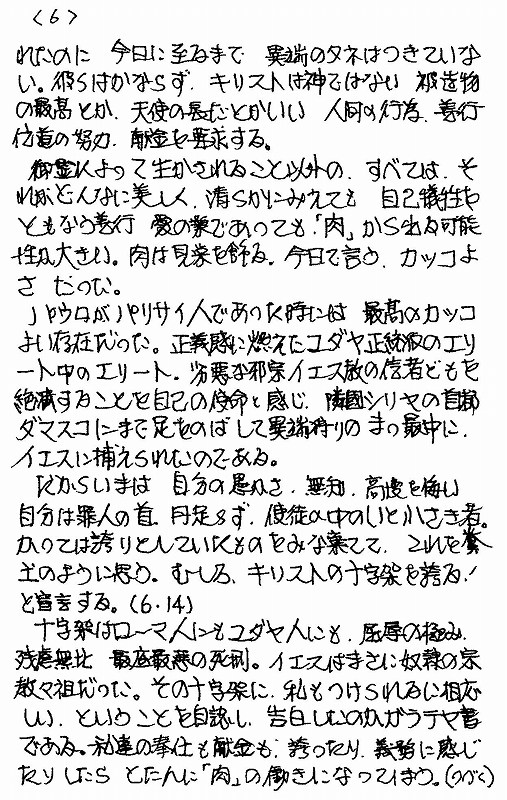 (6)
れたのに 今日に至るまで 異端のタネはつきていな
い。彼らはかならず、キリストは神ではない 被造物
の最高とか、天使の長だとかいい 人間の行為、善行
位置の努力、献金を要求する。
御霊によって生かされること以外の、すべては、そ
れがどんなに美しく、清らかにみえても 自己犠牲を
ともなう善行 愛の業であっても、「肉」から出る可能
性が大きい。肉は見栄を飾る。今日で言う、カッコよ
さ だった。
パウロがパリサイ人であった時には 最高のカッコ
よい存在だった。正義感に燃えたユダヤ正統派のエリ
ート中のエリート。劣悪な邪宗イエス教の信者どもを
絶滅することを自己の使命と感じ、隣国シリヤの首都
ダマスコにまで足をのばして異端狩りのまっ最中に、
イエスに捕えられたのである。
だからいまは 自分の愚かさ、無知、高慢を悔い
自分は罪人の首、月足らず、使徒の中のいと小さき者。
かつては誇りとしていたものをみな棄てて、これを糞
土のように思う。むしろ、キリストの十字架を誇る!
と宣言する。(6・14)
十字架はローマ人にもユダヤ人にも、屈辱の極み、
残虐無比 最底最悪の死刑。イエスはまさに奴隷の宗
教々祖だった。その十字架に、私もつけられるに相応
しい、ということを自認し、告白したのがガラテヤ書
である。私達の奉仕も献金も、誇ったり、義務に感じ
たりしたら とたんに「肉」の働きになってしまう。(つづく)